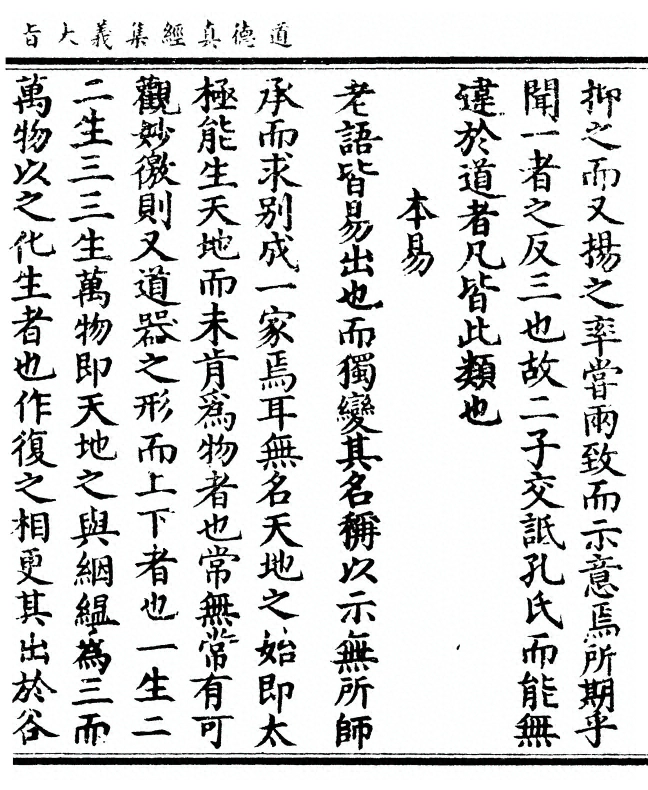 道德真經集義大旨
抑之而又揚之率嘗兩致而示意焉所期乎
聞一者之反三也故二子交詆孔氏而能無
違於道者凡皆此類也
本易
老語皆易出也而獨變其名稱以示無所師
承而求別成一家焉耳無名天地之始即太
極能生天地而未肯爲物者也常無常有可
觀妙徼則又道器之形而上下者也一生二
二生三三生萬物即天地之與絪縕爲三而
萬物以之化生者也作復之相更其出於谷